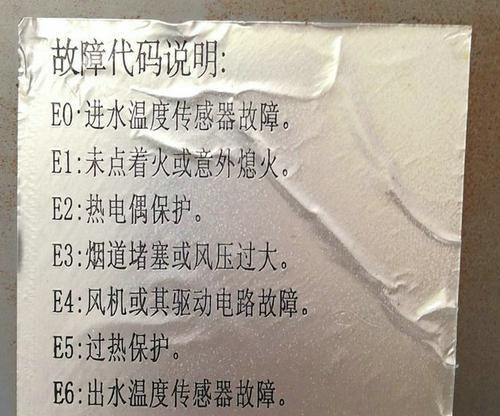 故障代码说明:
E0·进水温度传感器故障。
E1:未点着火或意外熄火。
E2:热电偶保护。
E3:烟道堵塞或风压过大。
E4:风机或其驱动电路故障。
E5:过热保护。
E6:出水温度传感器故障。